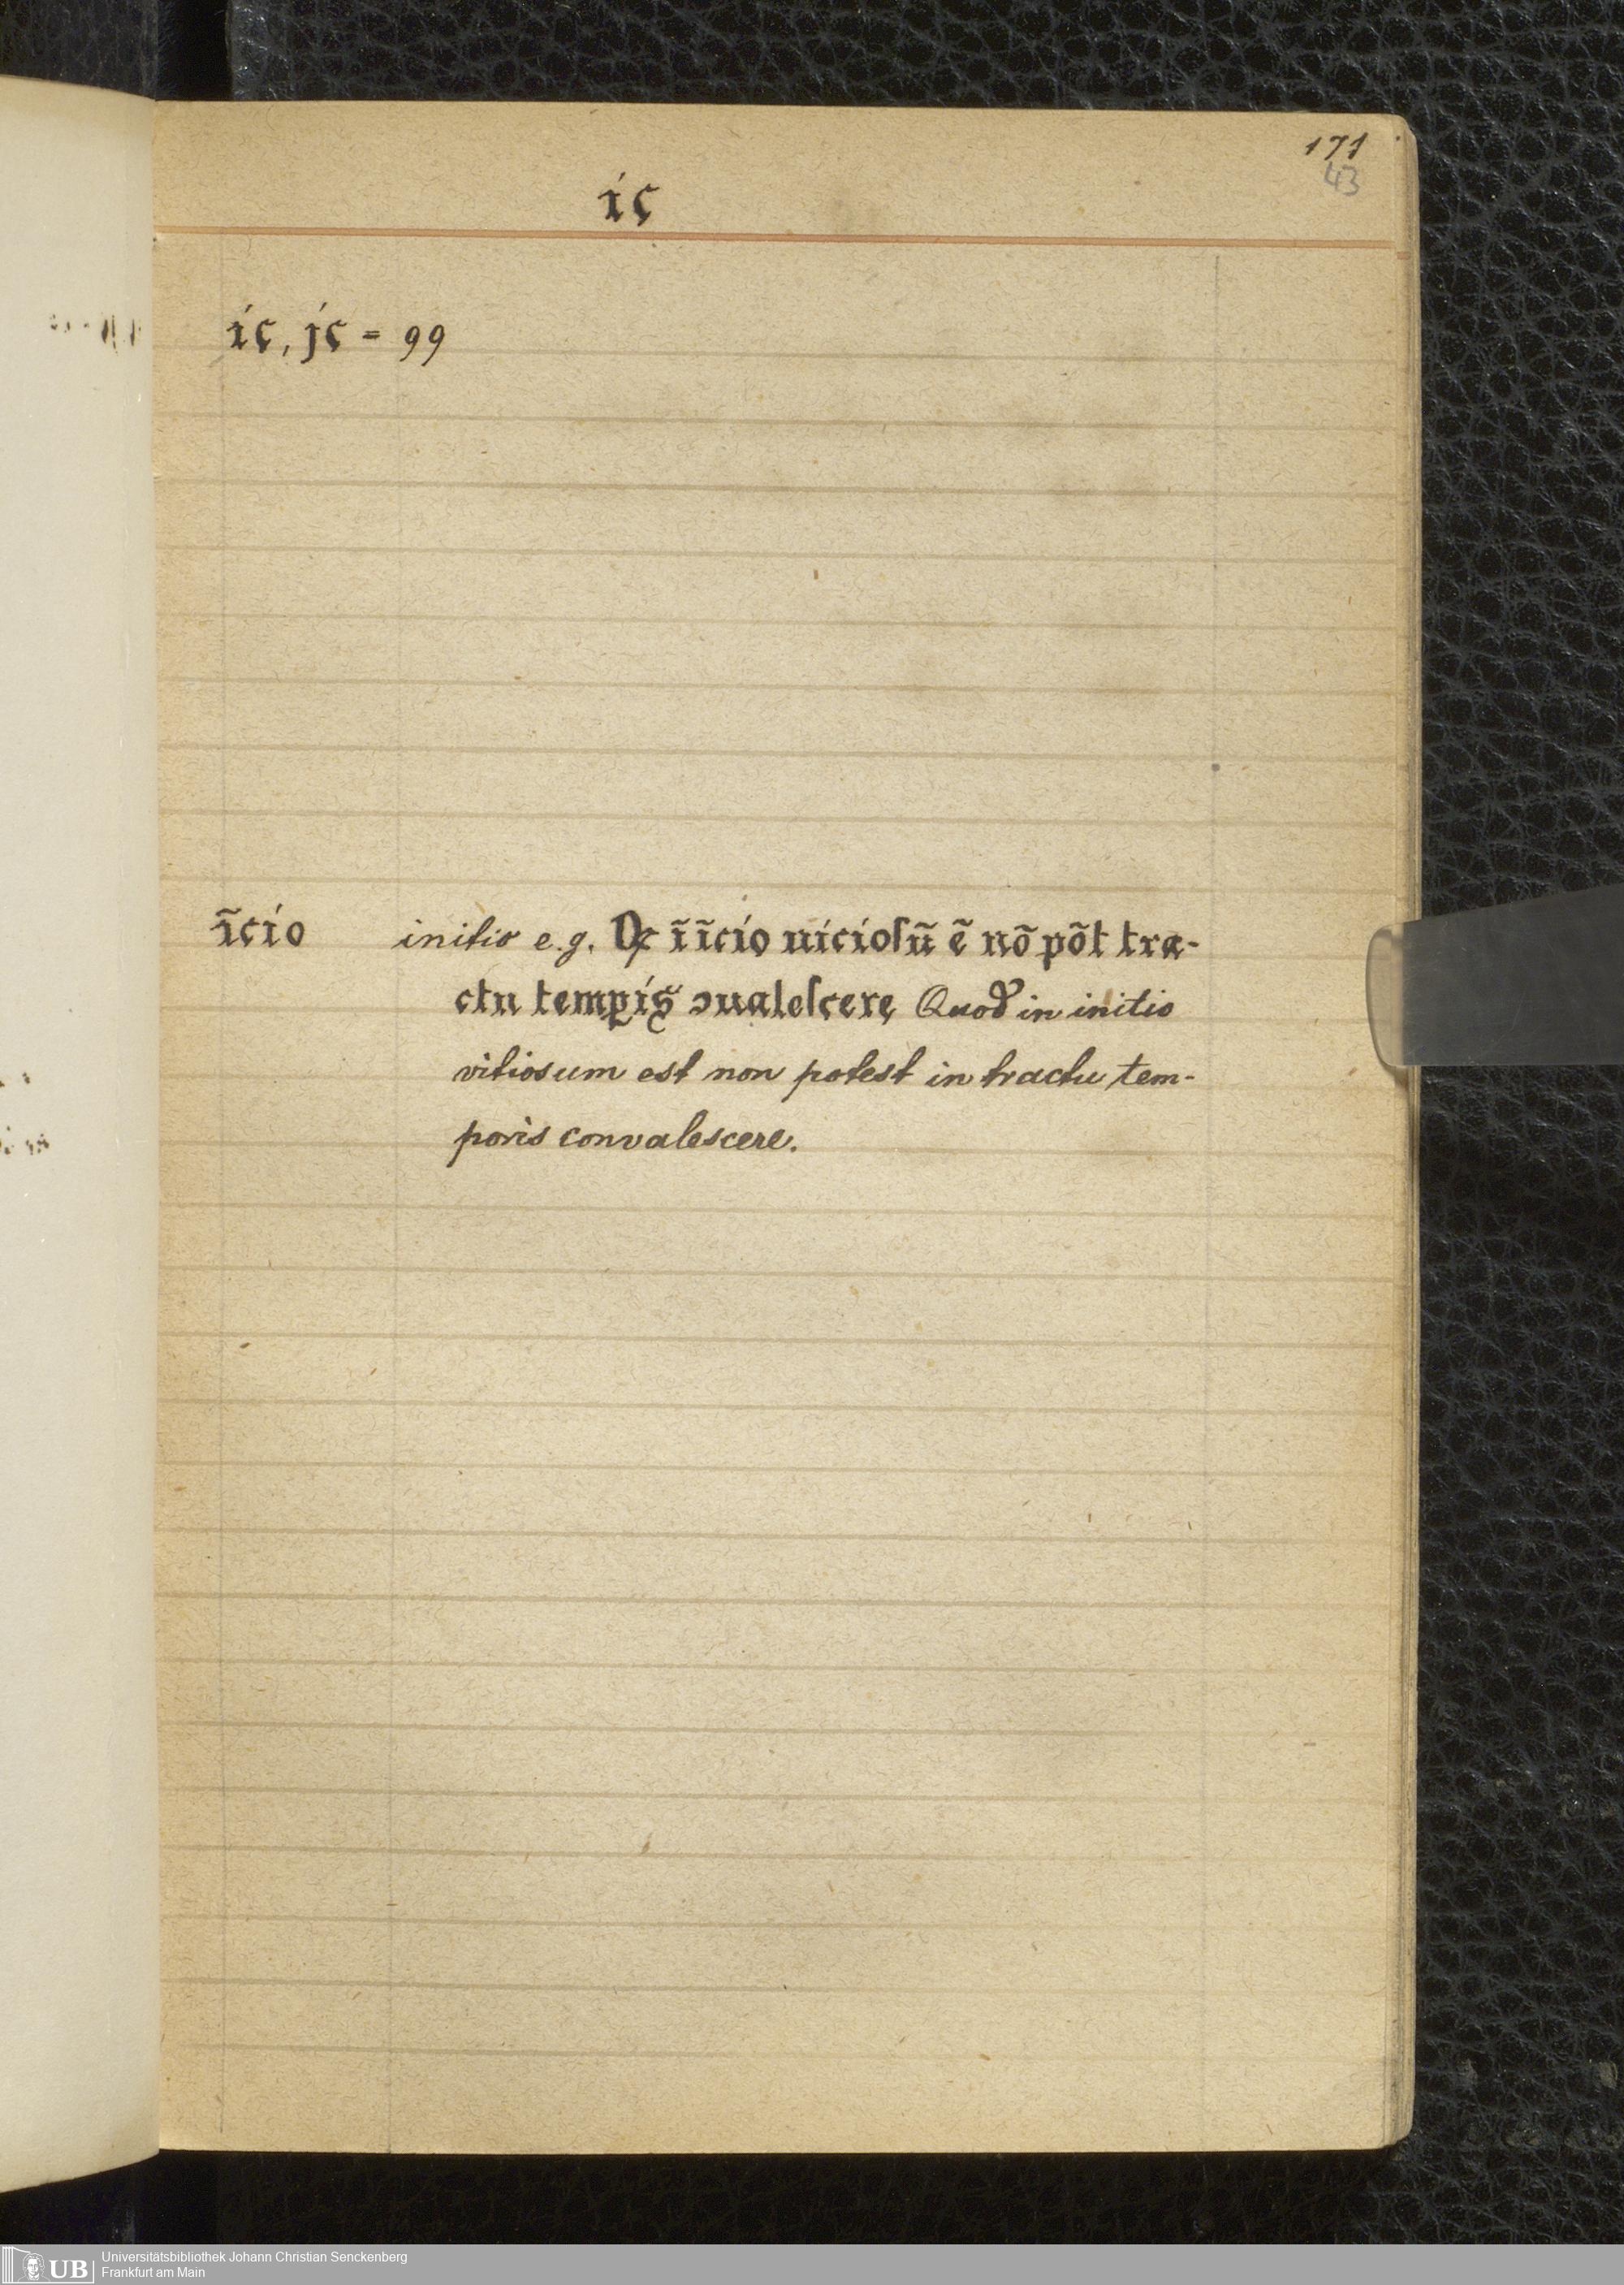 171
43
ic
ic, jc = 99
ĩcio initio e.g. Qꝭ ĩ ĩcio uicioſũ ẽ nõ põt tra-
ctu temꝑis ↄualeſcere Quod in initio
vitiosum est non potest in tractu tem-
poris convalescere.
UB Universitätsbibliothek Johann Christian Senckenberg
Frankfurt am Main